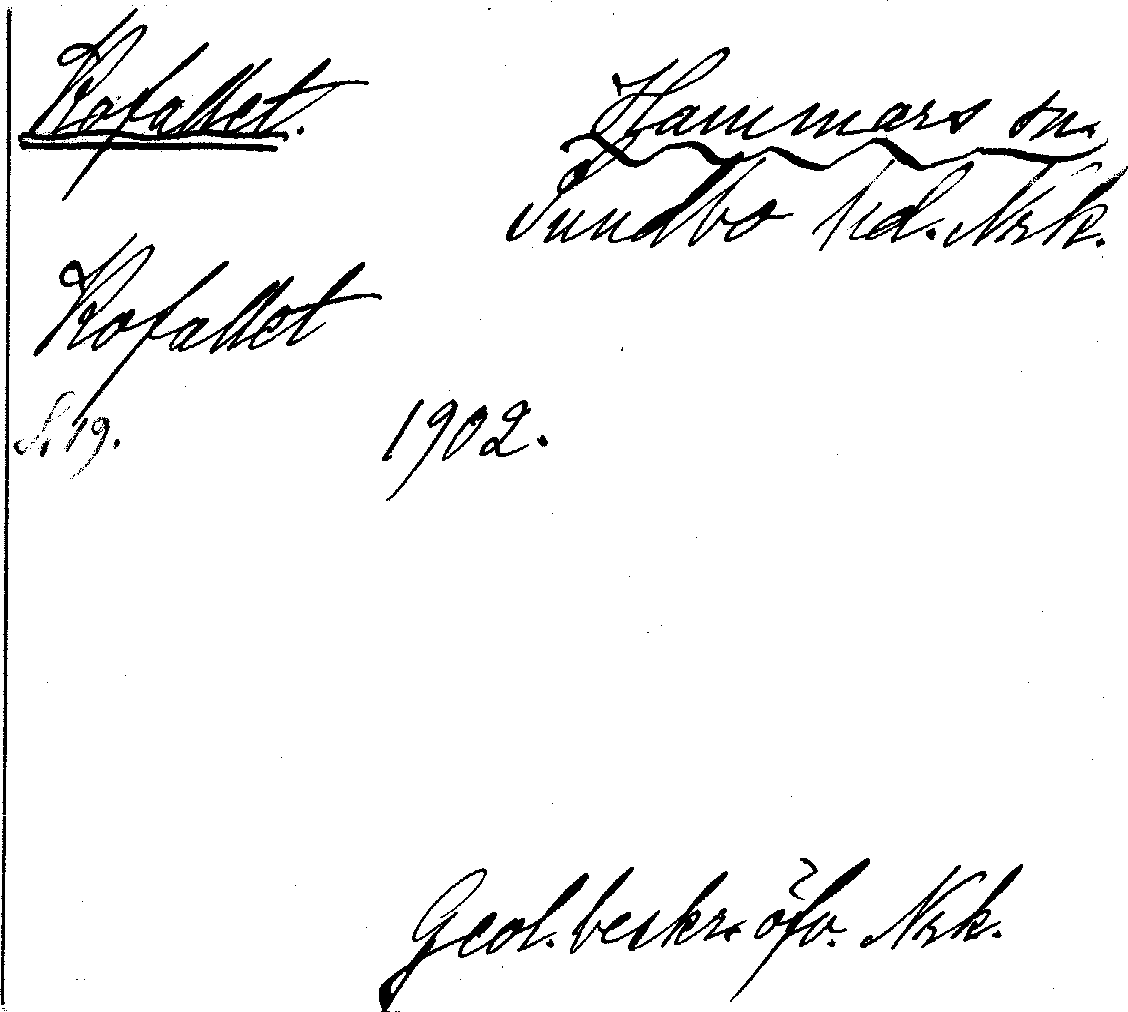 Kofallet.
Hammars sn.
Sundbo hd. Nrk.
Kofallet
S. 19. 1902.
Geol. beskr. öfv. Nrk.